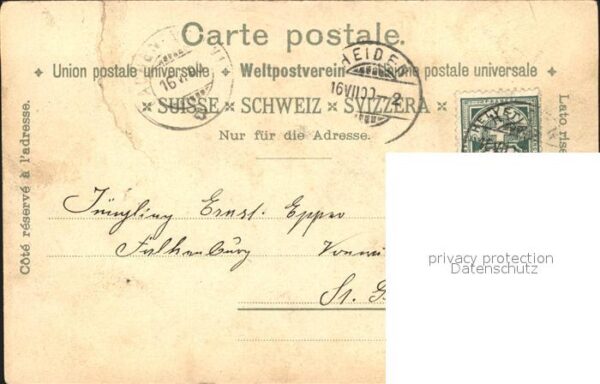 Carte postale.
Union postale universelle Weltpostverein Unione postale universale
SUISSE SCHWEIZ SVIZZERA
Nur für die Adresse.
Côté réservé à l'adresse.
HEIDEN
16VII00-2
16 VII
Jüngling Ernst Epper
Falkenburg
St. G
privacy protection
Datenschutz